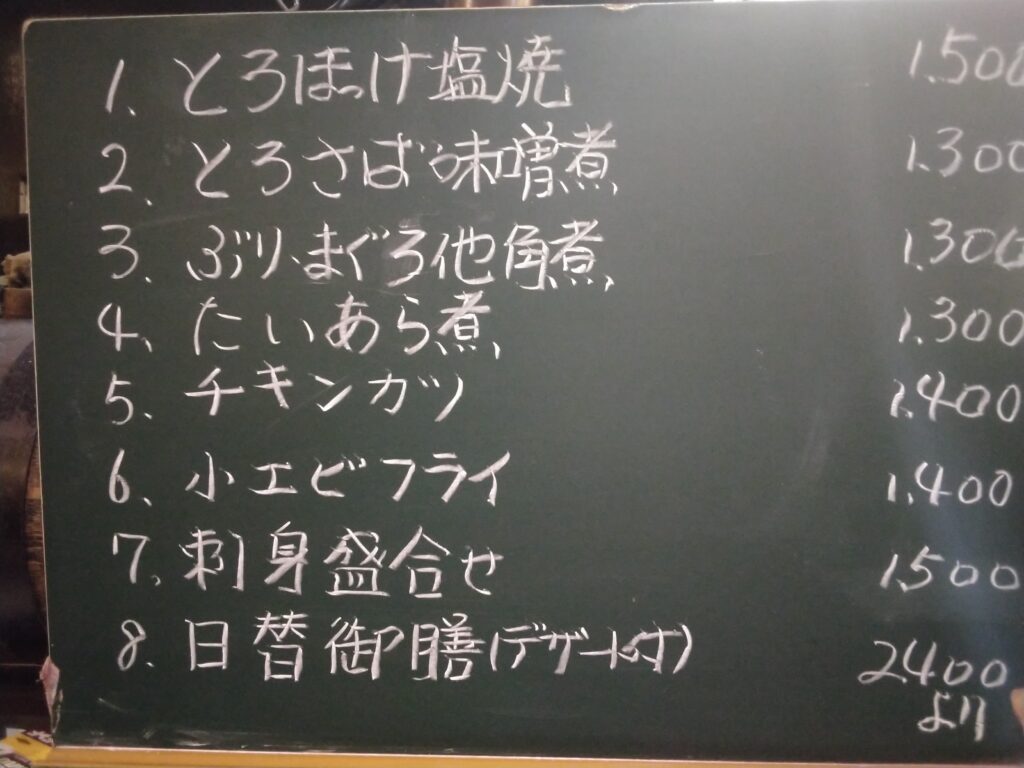 1. とろほっけ塩焼 1.500
2. とろさば味噌煮 1.300
3. ぶり、まぐろ他角煮 1.300
4. たいあら煮 1.300
5. チキンカツ 1.400
6. 小エビフライ 1.400
7. 刺身盛合せ 1.500
8. 日替御膳(デザート付) 2.400
より